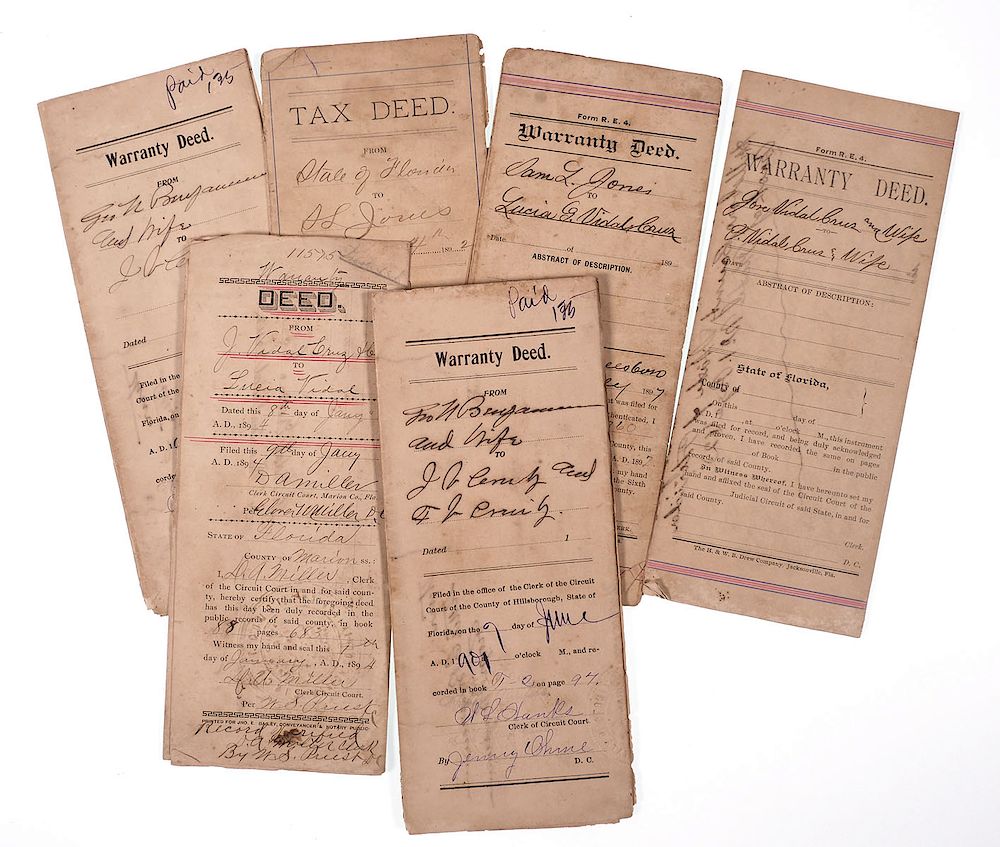 Paid
1.25
Warranty Deed.
FROM
Geo W Benjamin
and Wife
TO
Dated
Filed in the
Court of the
Florida, on
A. D. 1
corded
TAX DEED.
FROM
State of Florida
TO
S L Jones
189 2
Form R. E. 4.
Warranty Deed.
Sam L. Jones
TO
Lucia E. Vidal Cruz
Date of 189
ABSTRACT OF DESCRIPTION.
1897
was filed for
thenticated, I
County, this
A. D. 189
my hand
the Sixth
County.
ERK.
Form R. E. 4.
WARRANTY DEED.
Jose Vidal Cruz and Wife
TO
E. Vidal Cruz & Wife
DATE
ABSTRACT OF DESCRIPTION:
State of Florida,
County of
On this day of
A. D. 1 , at o'clock M., this instrument
was filed for record, and being duly acknowledged
and proven, I have recorded the same on pages
of Book in the public
records of said County.
In Witness Whereof, I have hereunto set my
hand and affixed the seal of the Circuit Court of the
Judicial Circuit of said State, in and for
said County.
Clerk.
D. C.
The H. & W. B. Drew Company, Jacksonville, Fla.
11575
Warranty
DEED.
FROM
J. Vidal Cruz &
TO
Lucia Vidal
Dated this 8th day of Jany
A. D., 189 4
Filed this 9th day of Jany
A. D. 189 4
D A Miller
Clerk Circuit Court, Marion Co., Fla
Per Glover W Miller D.C.
STATE OF Florida
COUNTY OF Marion SS.:
I, D. A. Miller, Clerk
of the Circuit Court in and for said coun-
ty, hereby certify that the foregoing deed
has this day been duly recorded in the
public records of said county, in book
88 pages 683
Witness my hand and seal this 9th
day of January, A. D., 189 4
D. A. Miller
Clerk Circuit Court.
Per W. S. Priest
PRINTED FOR JNO. E. BAILEY, CONVEYANCER & NOTARY PUBLIC
Record Verified
D. A. Miller Clerk
By W. S. Priest D.C.
Paid
1.25
Warranty Deed.
FROM
Geo W Benjamin
and Wife
TO
J V Cruz and
Dated 1
Filed in the office of the Clerk of the Circuit
Court of the County of Hillsborough, State of
Florida, on the 7 day of June
A. D. 1901 o'clock M., and re-
corded in book on page 97.
Clerk of Circuit Court.
By Jenny Shine
D. C.